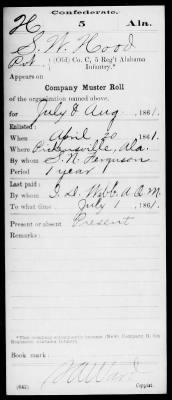 Confederate.
H 5 Ala.
S. W. Hood
Pvt., (Old) Co. C, 5 Reg't Alabama
Infantry.*
Appears on
Company Muster Roll
of the organization named above,
for July & Aug, 1861.
Enlisted:
When April 20, 1861.
Where Pickensville, Ala.
By whom S. N. Ferguson
Period 1 year
Last paid:
By whom I. D. Webb A Q M.
To what time July 1, 1861.
Present or absent Present
Remarks:
*This company subsequently became (New) Company H, 5th
Regiment Alabama Infantry.
Book mark:
(642) Copyist.